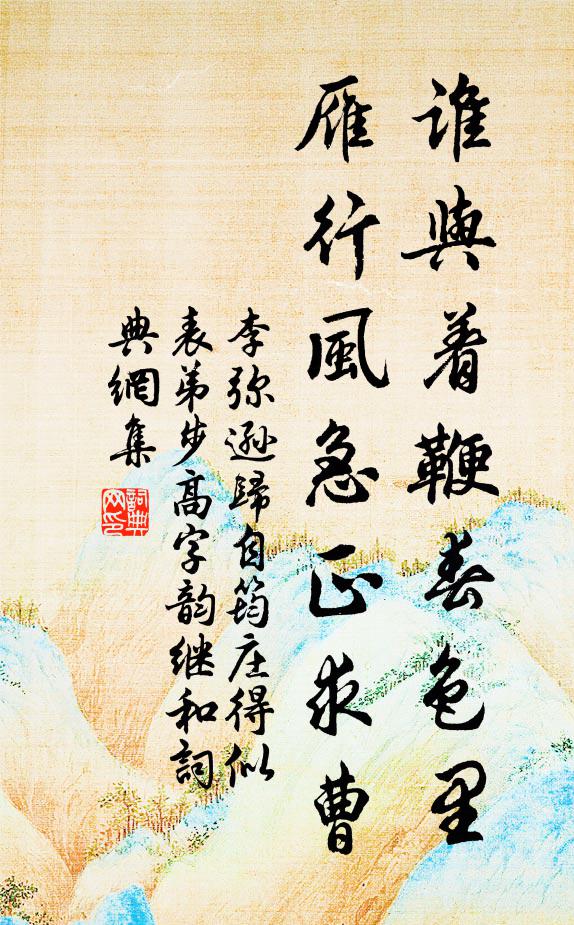 谁與着鞭春色里
雁行風急正求曹
李弥遜歸自筠庄得似
表弟步高字韵继和詞
典網集
詞典網印